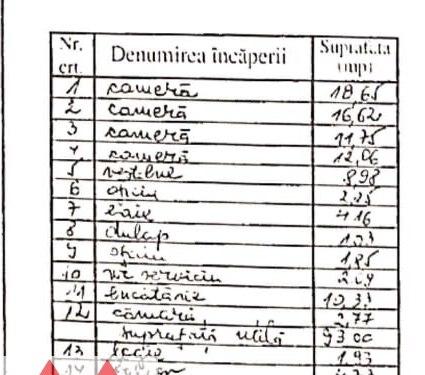 Nr. crt. Denumirea încăperii Suprafața (mp)
1 cameră 18,65
2 cameră 16,62
3 cameră 11,75
4 cameră 12,06
5 vestibul 8,98
6 oficiu 2,25
7 baie 4,16
8 dulap
9 oficiu 1,85
10 wc serviciu
11 bucătărie 10,33
12 cămară 2,77
suprafață utilă 93,00
13 1,93
14